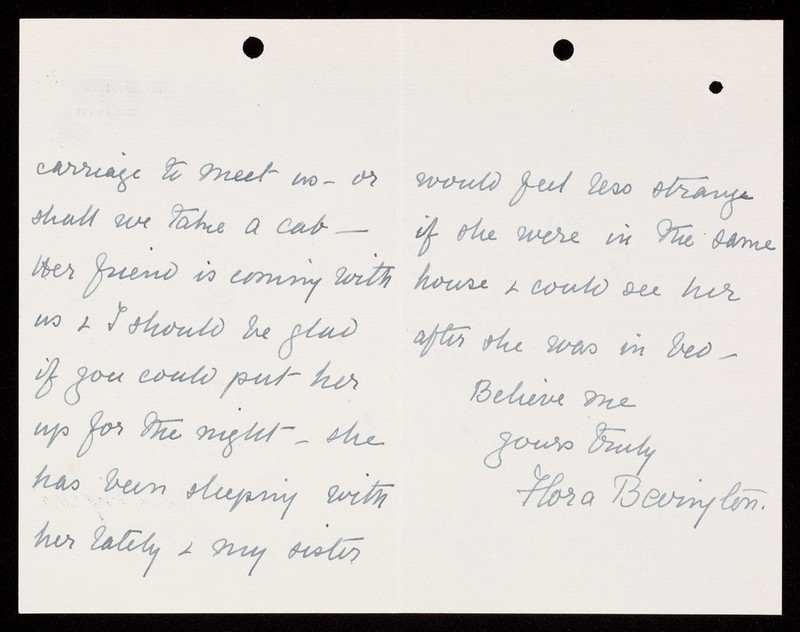 carriage to meet us – or
shall we take a cab –
Her friend is coming with
us & I should be glad
if you could put her
up for the night – she
has been sleeping with
her lately & my sister
would feel less strange
if she were in the same
house & could see her
after she was in bed –
Believe me
yours truly
Flora Bevington.